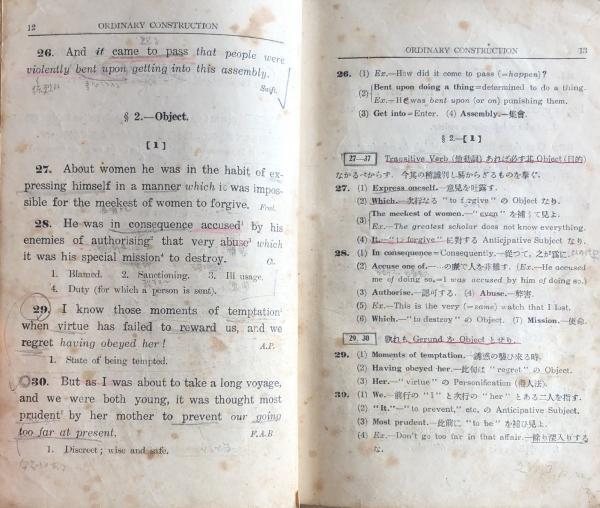 12 ORDINARY CONSTRUCTION
26. And it came to pass that people were
violently bent upon getting into this assembly.
Swift.
§ 2.—Object.
[1]
27. About women he was in the habit of ex-
pressing himself in a manner which it was impos-
sible for the meekest of women to forgive.
28. He was in consequence accused¹ by his
enemies of authorising² that very abuse³ which
it was his special mission⁴ to destroy. G.
1. Blamed. 2. Sanctioning. 3. Ill usage.
4. Duty (for which a person is sent).
29. I know those moments of temptation¹
when virtue has failed to reward us, and we
regret having obeyed her! A.P.
1. State of being tempted.
30. But as I was about to take a long voyage,
and we were both young, it was thought most
prudent¹ by her mother to prevent our going
too far at present. F.A.B
1. Discreet; wise and safe.
ORDINARY CONSTRUCTION 13
26. (1) Ex.—How did it come to pass (=happen)?
(2) Bent upon doing a thing=determined to do a thing.
Ex.—He was bent upon (or on) punishing them.
(3) Get into=Enter. (4) Assembly.—集會.
§ 2.—[1]
27—37 Transitive Verb (他動詞) あれば必ず其 Object (目的)
なかるべからず. 今其の稍識別し易からざるものを擧ぐ.
27. (1) Express oneself.—意見を吐露す.
(2) Which.—次行なる "to forgive" の Object なり.
(3) The meekest of women.—"even" を補うて見よ.
Ex.—The greatest scholar does not know everything.
(4) It.—"to forgive" に對する Anticipative Subject なり.
28. (1) In consequence=Consequently.—從つて, 之が爲に.
(2) Accuse one of.—…の廉で人を非難す. (Ex.—He accused
me of doing so.=I was accused by him of doing so.)
(3) Authorise.—認可する. (4) Abuse.—弊害.
(5) Ex.—This is the very (=same) watch that I lost.
(6) Which.—"to destroy" の Object. (7) Mission.—使命.
29, 30 孰れも Gerund を Object とせり.
29. (1) Moments of temptation.—誘惑の襲ひ來る時.
(2) Having obeyed her.—此句は "regret" の Object.
(3) Her.—"virtue" の Personification (擬人法).
30. (1) We.—前行の "I" と次行の "her" とある二人を指す.
(2) "It."—"to prevent," etc. の Anticipative Subject.
(3) Most prudent.—此前に "to be" を補ひ見よ.
(4) Ex.—Don't go too far in that affair.—餘り深入りする
な.